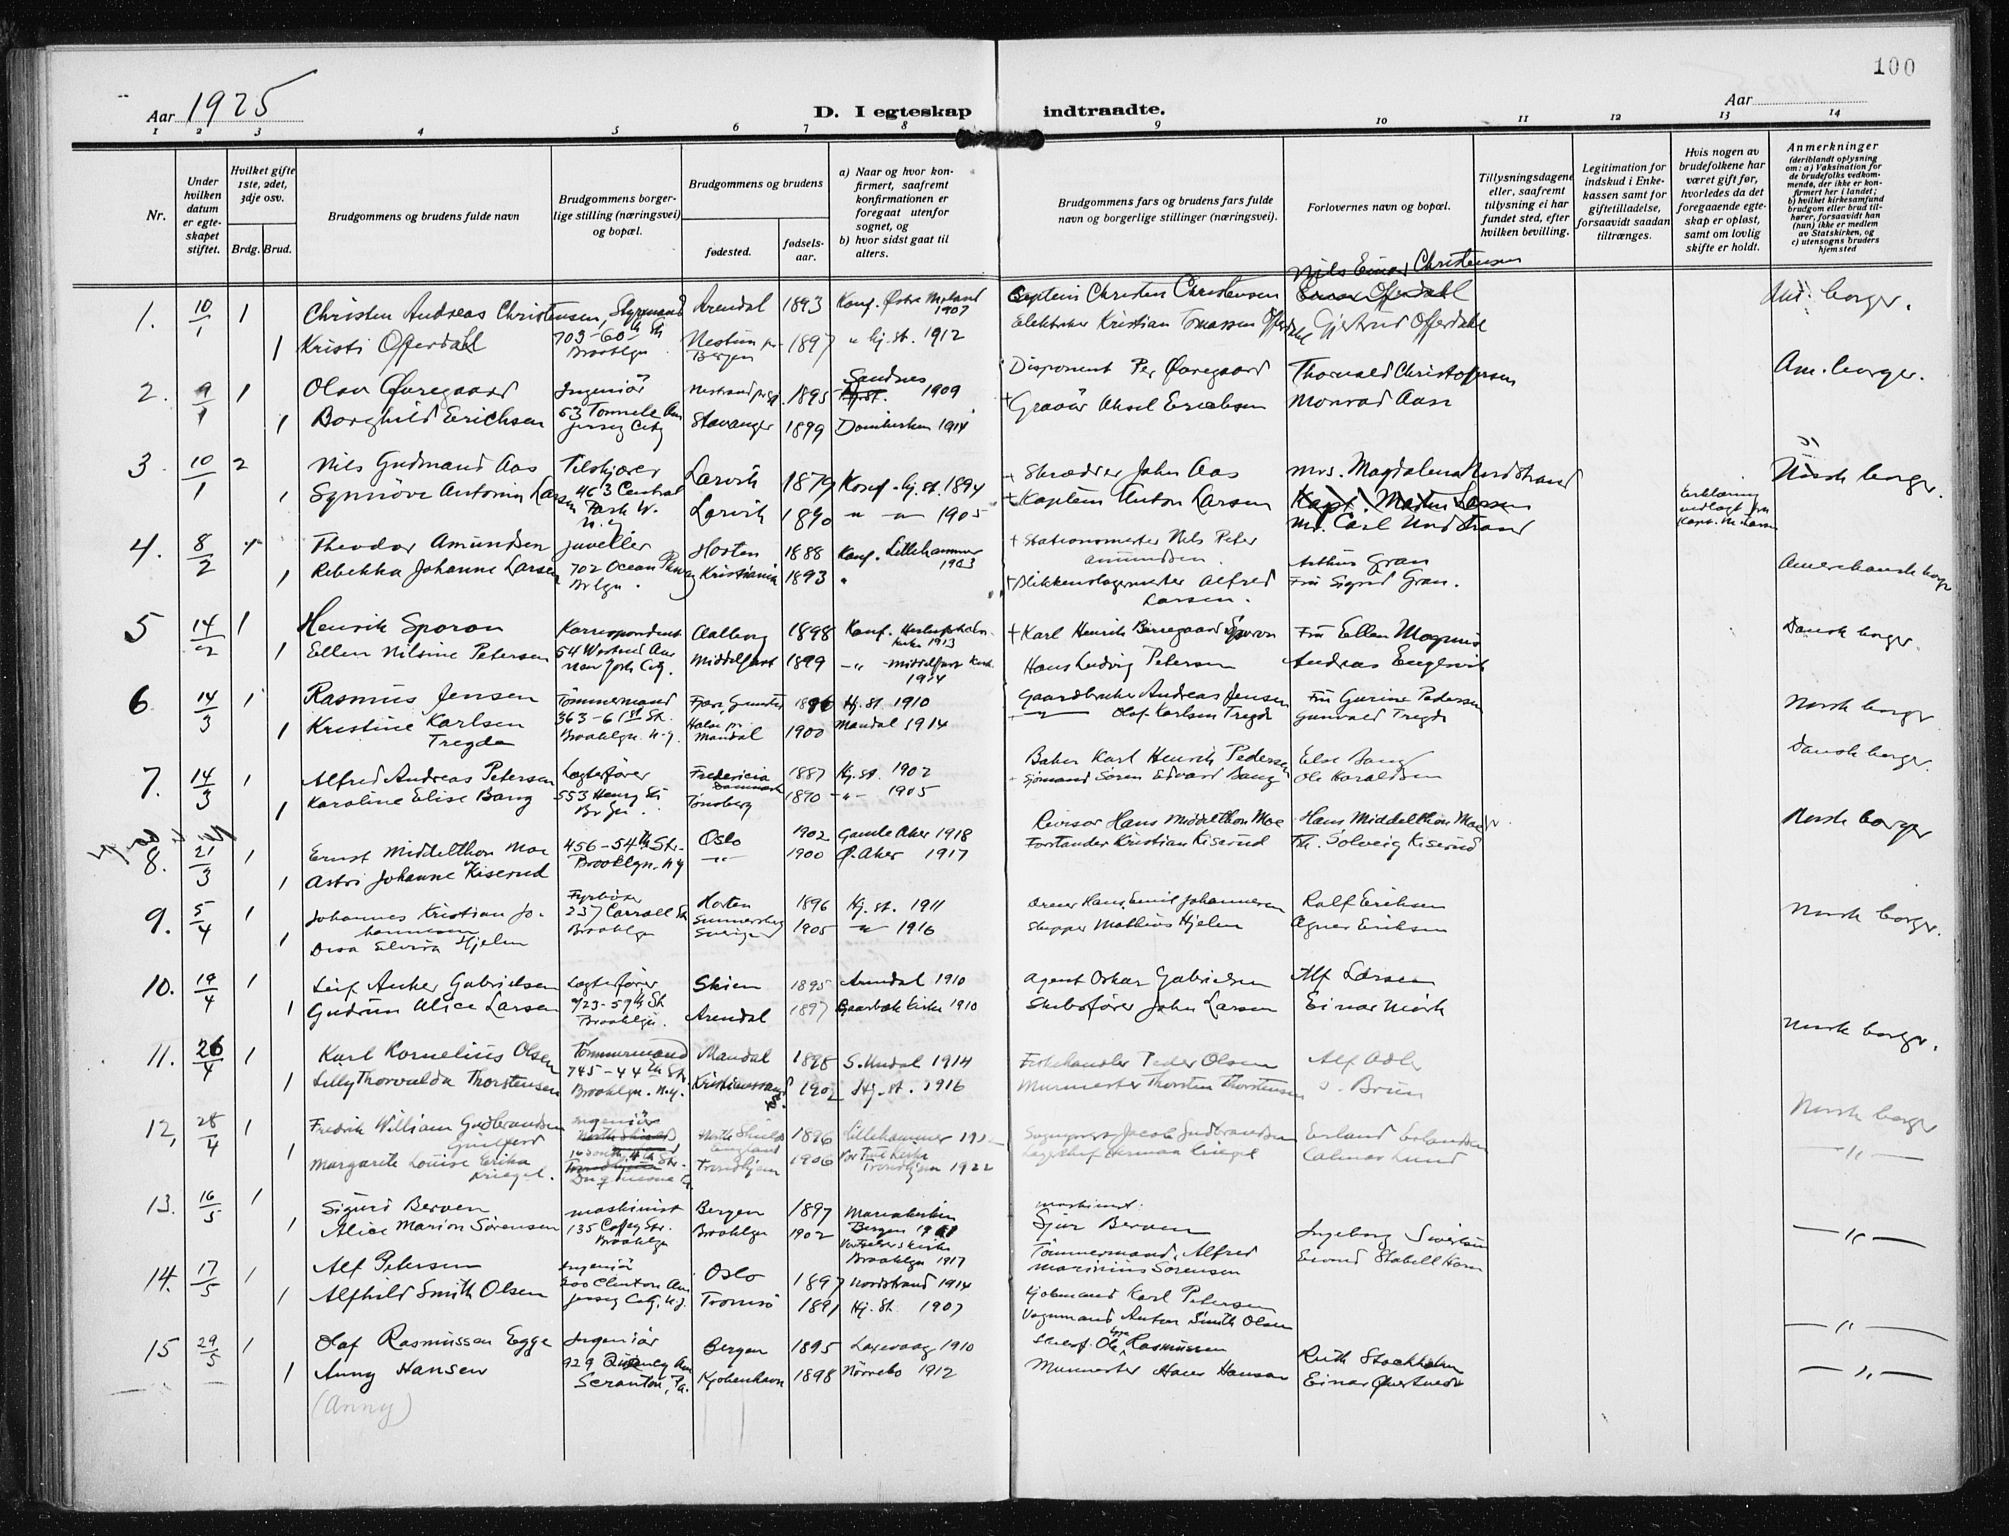 100
Aar 1925
D. I egteskap indtraadte.
Aar
1 2 3 4 5 6 7 8 9 10 11 12 13 14
Nr.
Under hvilken datum er egteskapet stiftet.
Hvilket gifte 1ste, 2det, 3dje osv.
Brdg. Brud.
Brudgommens og brudens fulde navn
Brudgommens borgerlige stilling (næringsvei) og bopæl.
Brudgommens og brudens
fødested.
fødselsaar.
a) Naar og hvor konfirmert, saafremt konfirmationen er foregaat utenfor sognet, og
b) hvor sidst gaat til alters.
Brudgommens fars og brudens fars fulde navn og borgerlige stillinger (næringsvei).
Forlovernes navn og bopæl.
Tillysningsdagene eller, saafremt tillysning ei har fundet sted, efter hvilken bevilling.
Legitimation for indskud i Enkekassen samt for giftetilladelse, forsaavidt saadan tiltrænges.
Hvis nogen av brudefolkene har været gift før, hvorledes da det foregaaende egteskap er opløst, samt om lovlig skifte er holdt.
Anmerkninger
(deriblandt oplysning om: a) Vaksination for de brudefolks vedkommende, der ikke er konfirmert her i landet; b) hvilket kirkesamfund brudgom eller brud tilhører, forsaavidt han (hun) ikke er medlem av Statskirken, og c) utensogns bruders hjemsted
Nils Einar Christensen
1. 10/1 1 Christen Andreas Christensen, Styrmand Arendal 1893 Konf. Østre Moland 1907 Captein Christen Christensen
1 Kristi Offerdahl 703-60th St Brooklyn Nestun pr Bergen 1897 " Hj. st. 1912 Elektriker Kristian Tomassen Offerdahl Gjertrud Offerdahl
Am. borger.
2. 9/1 1 Olav Øvregaard Ingeniør 1895 Sandnes 1909 Disponent Per Øvregaard Thorvald Christofersen Am. borger.
1 Borghild Erichsen 53 Tonnele Ave Jersey City Stavanger 1899 Domkirken 1914 Graver Aksel Erichsen Monrad Aase
3. 10/1 2 Nils Gudmand Aas Tilskjærer Larvik 1879 Konf. Hj. st. 1894 Skrædder John Aas Mrs. Magdalena Nordstrand Norsk borger.
1 Synnöve Antonin Larsen 463 Central Park W. N.Y. Larvik 1890 " " 1905 Kaptein Anton Larsen Kapt. Martin Larsen
Mr. Carl Nordstrand
Erklæring vedlagt fra Kapt. M. Larsen
4. 8/2 Theodor Amundsen Juveller Horten 1888 Konf. Lillehammer 1903 Stationsmester Nils Peter Amundsen Arthur Gran Amerikansk borger
1 Rebekka Johanne Larsen 702 Ocean Parkway Brklyn. Kristiania 1893 " Blikkenslagermester Alfred Larsen. Fru Sigrid Gran.
5 14/2 1 Henrik Sporon Korrespondent Aalborg 1898 Konf. Kirke 1913 Karl Henrik Sporon Fru Ellen Magnus Dansk borger.
1 Ellen Nilsine Petersen New York City. Middelfart 1899 " Middelfart Kirke 1914 Hans Ludvig Petersen Andreas Engesvik
6 14/3 1 Rasmus Jensen Tømmermand 1896 Hj. st. 1910 Gaardbruker Andreas Jensen Fru Gurine Pedersen Norsk borger
1 Kristine Karlsen Tregde 363-61st St. Brooklyn N.Y. Halse pr. Mandal 1900 Mandal 1914 Olaf Karlsen Tregde Gunvald Tregde
7. 14/3 1 Alfred Andreas Petersen Lægterfører Fredericia Danmark 1887 Hj. st. 1902 Baker Karl Henrik Pedersen Else Bang Dansk borger.
1 Karoline Elise Bang 553 Henry St Tønsberg 1890 " 1905 Sjømand Søren Edvard Bang Ole Haraldsen
8. 21/3 1 Ernst Middelthon Moe 456-54th Str. Oslo 1902 Gamle Aker 1918 Revisor Hans Middelthon Moe Hans Middelthon Moe jr. Norsk borger
1 Astri Johanne Kiserud Brooklyn. NY " 1900 Ø. Aker 1917 Forstander Kristian Kiserud Fr. Solveig Kiserud
9. 5/4 1 Johannes Kristian Johannessen Fyrbøter Horten 1896 Hj. st. 1911 Hans Emil Johannesen Rolf Eriksen Norsk borger.
1 Disa Elvira Hjelm 237 Carroll St Brooklyn Sverige 1905 " 1916 Skipper Mathias Hjelm Agnes Eriksen
10. 19/4 1 Leif Anker Gabrielsen Lægterfører Skien 1895 Arendal 1910 Agent Oskar Gabrielsen Alf Larsen
1 Gudrun Alice Larsen 423-59th St. Brooklyn. Arendal 1897 Kirke 1910 Skibsfører John Larsen Einar Mörk
Norsk borger.
11. 26/4 1 Karl Kornelius Olsen Tømmermand Mandal 1898 S. Undal 1914 Fiskehandler Peder Olsen Alf Adler
1 Lilly Thorvalda Thorstensen 745-44th Str. Brooklyn. N.Y. Kristianssand 1902 Hj. st. 1916 Murmester Thorsten Thorstensen S. Brun
12, 28/4 Fredrik William Gudbrandsen Ingeniør North Shields England 1896 Lillehammer Jacob Gudbrandsen Erland Erlandsen Norsk borger
1 Margarete Louise Erika Kriegel. Trondhjem 1906 Vor Frue Kirke Trondhjem 1922 Herman Kriegel Calmar Lund "
13. 16/5 1 Sigurd Berven Maskinist Bergen 1897 Mariakirken Bergen Maskinist. Sjur Berven Ingeborg Sivertsen
1 Alice Marion Sørensen 135 Coffey Str. Brooklyn Brooklyn 1902 Vor Frelsers Kirke Brooklyn 1917 Tömmermand. Alfred Marinius Sørensen Eivind Stabell Horn "
14. 17/5 1 Alf Petersen Ingeniør Oslo 1897 Nordstrand 1914 Karl Petersen
1 Alfhild Smith Olsen 200 Clinton Ave Jersey City, N.J. Tromsö 1891 Hj. st. 1907 Vognmand Anton Smith Olsen "
15 29/5 1 Olaf Rasmussen Egge Ingeniør Bergen 1895 Laxevaag 1910 Ole Egge Rasmussen Ruth Stockholm
1 Anny Hansen 929 Quincy Ave Scranton, Pa. Kjøbenhavn 1898 Nörrebo 1912 Murmester Hansen Einar "
(Anny)